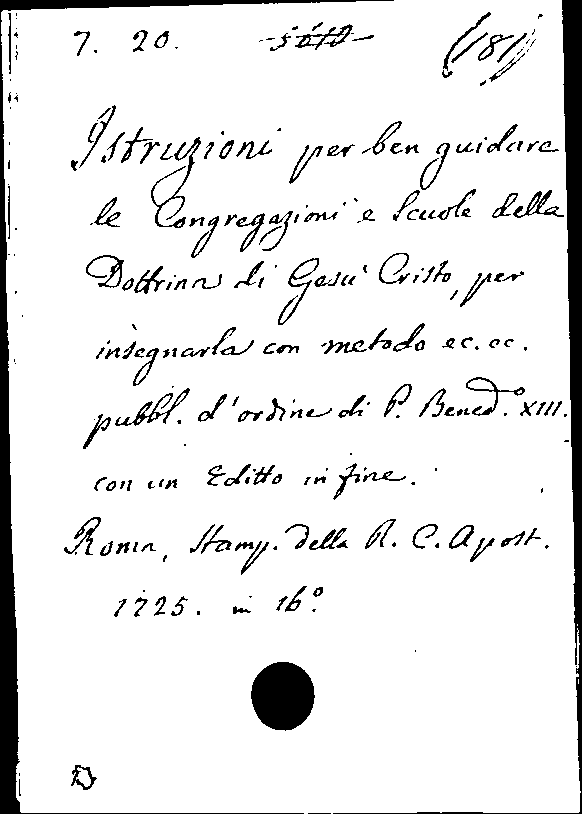 7. 20. (181)
Istruzioni per ben guidare
le Congregazioni e Scuole della
Dottrina di Gesù Cristo, per
insegnarla con metodo ec. ec.
pubbl. d'ordine di P. Bened.º XIII.
con un Editto in fine.
Roma, Stamp. della R. C. Apost.
1725. in 16º.